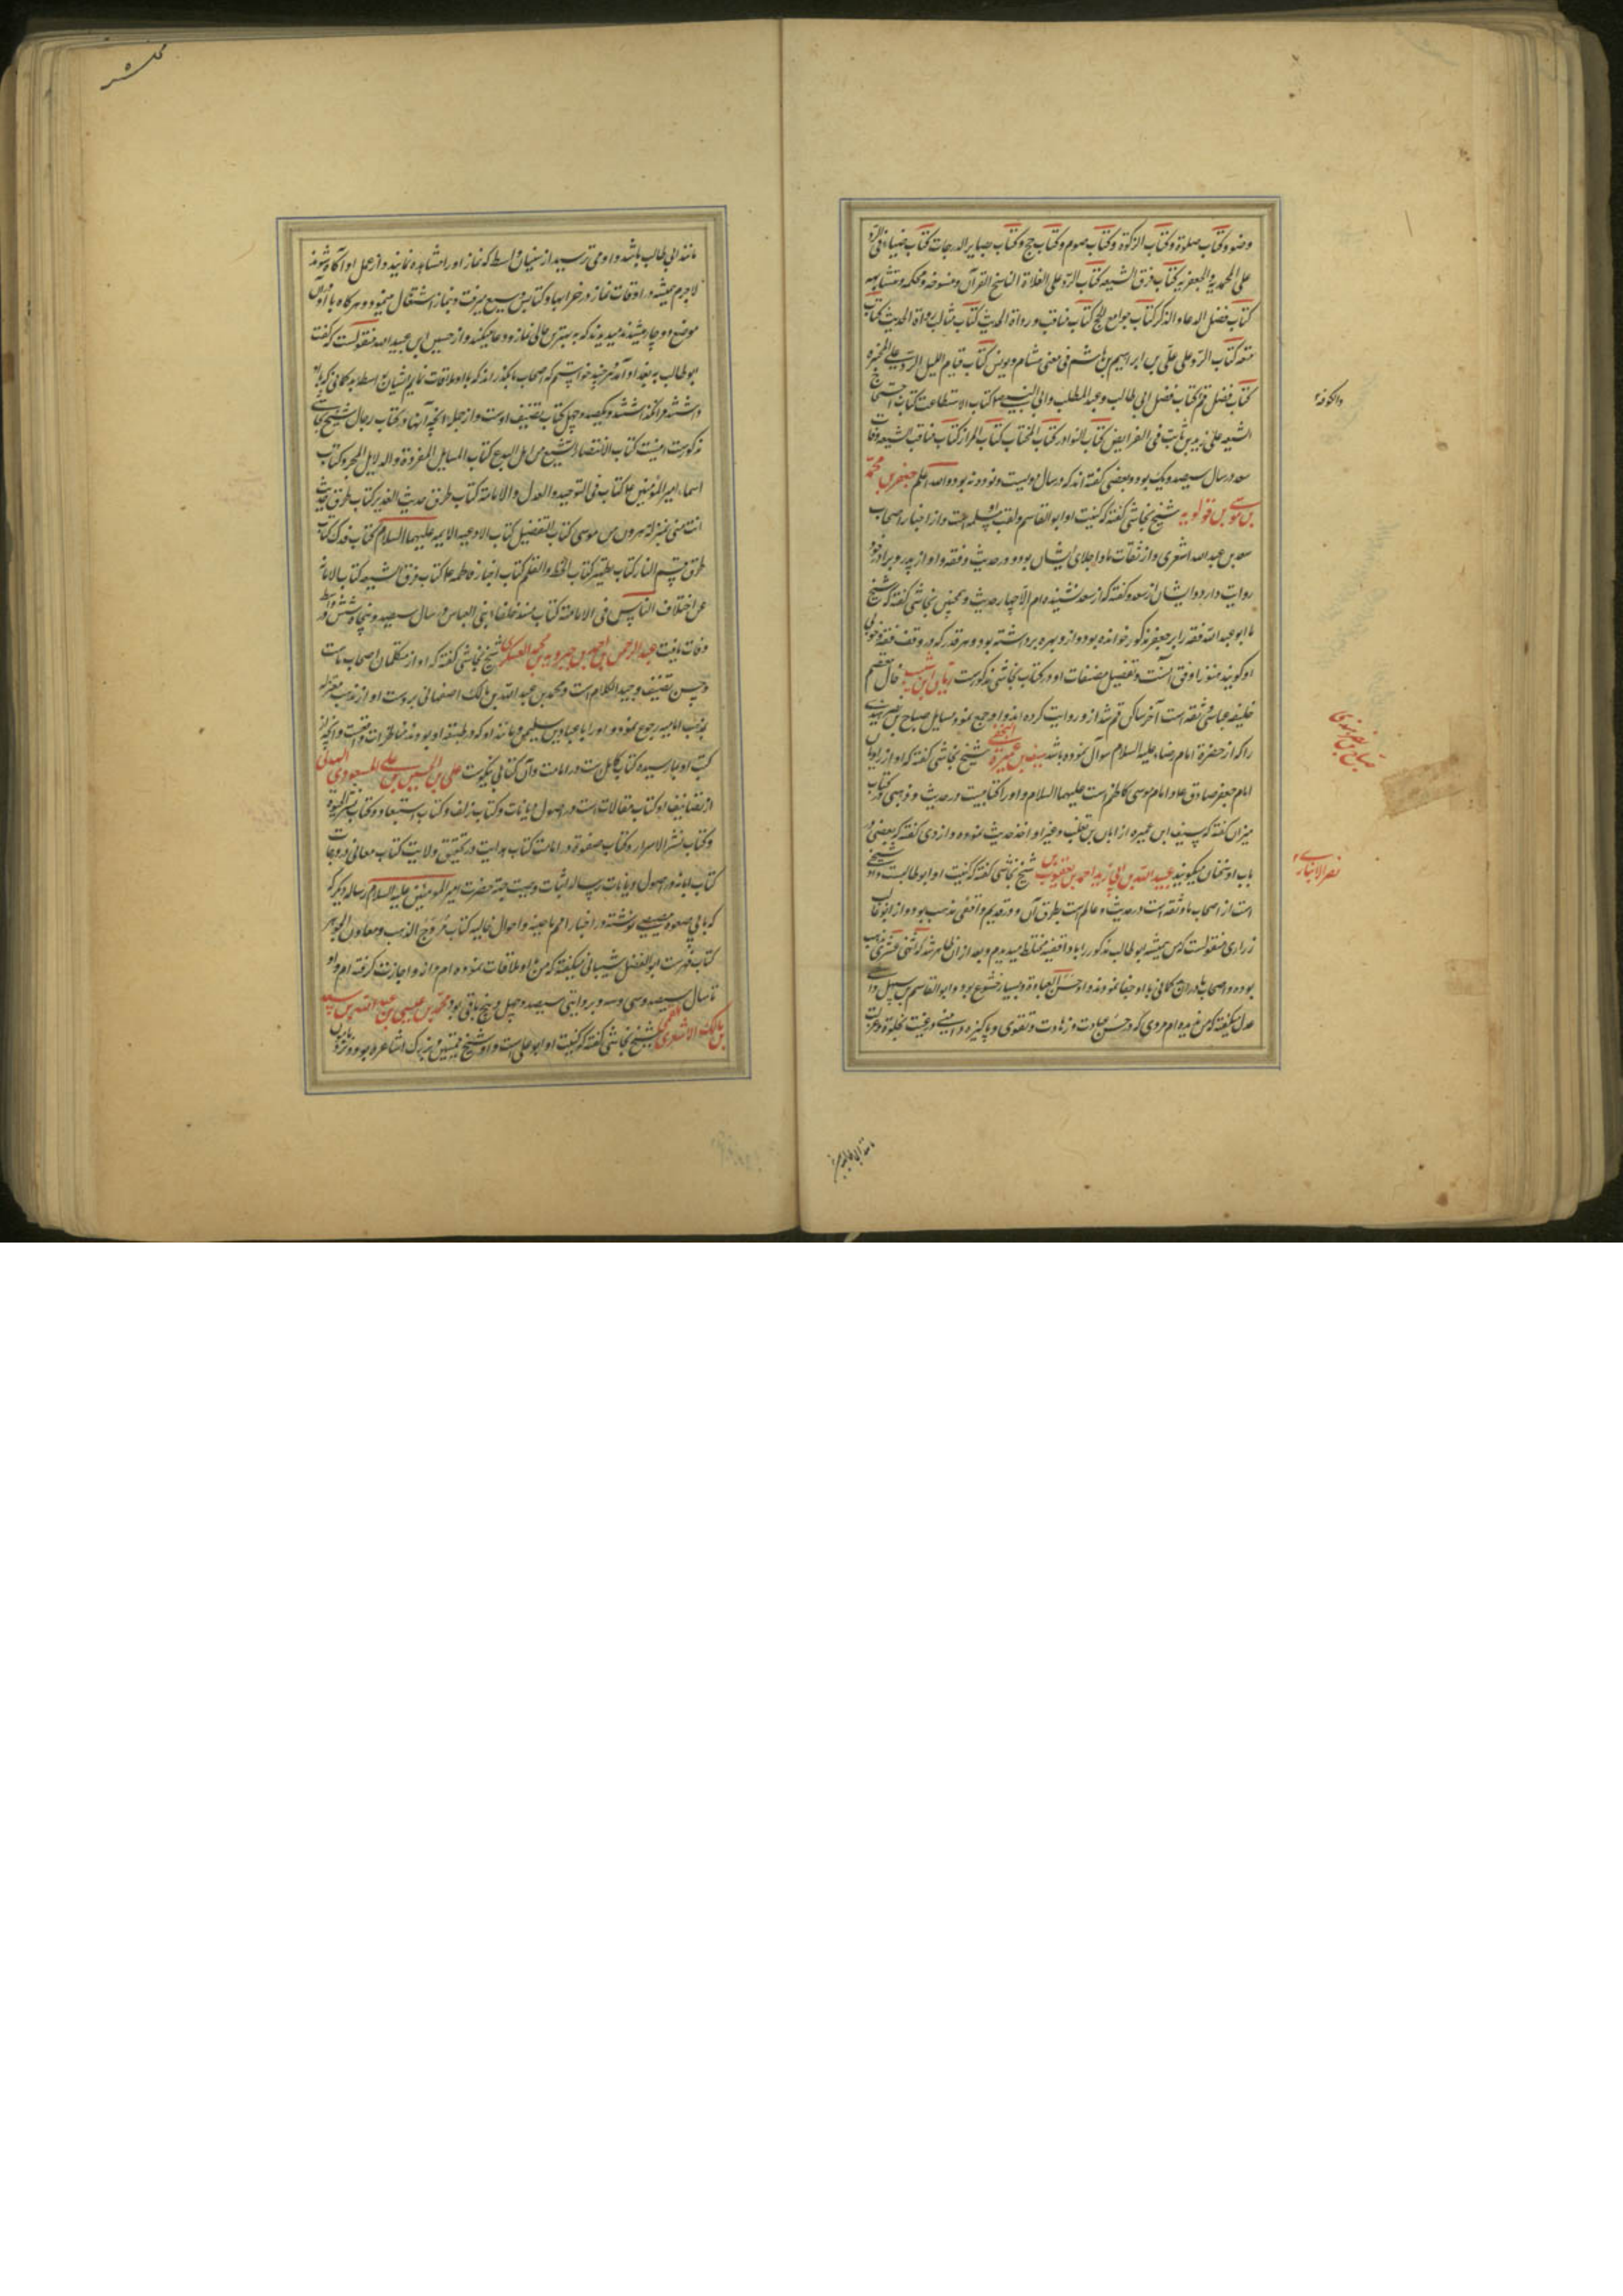 وضو و کتاب صلوة و کتاب الزکوة و کتاب صوم و کتاب حج و کتاب بصایر الدرجات کتاب ضیاء فی الرد
علی المحمدیة و الجعفریة کتاب فرق الشیعه کتاب الرد علی الغلاة الناسخ القرآن و منسوخه و محکمه و متشابهه
کتاب فضل الدعاء و الذکر کتاب جوامع الحج کتاب مناقب و رواة الحدیث کتاب مثالب رواة الحدیث کتاب
متعه کتاب الرد علی علی بن ابراهیم بن هاشم فی معنی هشام و یونس کتاب قیام اللیل الرد علی المجبره
کتاب فضل قم کتاب فضل ابی طالب و عبد المطلب و ابی النبی ص کتاب الاستطاعت کتاب احتجاج
والکوفه
الشیعه علی زید بن ثابت فی الفرایض کتاب النوادر کتاب المنتخبات کتاب المزار کتاب مناقب الشیعه وفات
سعد در سال سیصد و یک بود و بعضی گفته اند که در سال دویست و نود و نه بود والله اعلم جعفر بن محمد
بن موسی بن قولویه شیخ نجاشی گفته که کنیت او ابو القاسم و لقب مسلمه است و از اخیار اصحاب
سعد بن عبد الله اشعری و از ثقات ما و اجلای ایشان بود در حدیث و فقه و او از پدر و برادر خود
روایت دارد و ایشان از سعد و گفته که از سعد نشنیده ام الا چهار حدیث و همچنین نجاشی گفته که شیخ
ما ابو عبد الله فقه را بر جعفر مذکور خوانده بود و از و بهره برداشته بود و هر قدر که در وصف فقه و خوبی
او گویند هنوز او فوق آنست و تفصیل مصنفات او در کتاب نجاشی مذکور است ریان بن شبیب خال معتصم
خلیفه عباسی و ثقه است آخر ساکن قم شد از و روایت کرده اند و او جمع نمود مسایل صباح بن نصر هندی
صباح بن نصر هندی
را که از حضرة امام رضا علیه السلام سوال نموده باشد سیف بن عمیره النخعی شیخ نجاشی گفته که او از راویان
امام جعفر صادق ع و امام موسی کاظم است علیهما السلام و او را کتابیست در حدیث و ذهبی در کتاب
میزان گفته که سیف ابن عمیره از ابان بن تغلب و غیر او اخذ حدیث نموده و ازدی گفته که بعضی در
باب او سخنان میگویند عبید الله بن ابی زید احمد بن یعقوب بن شیخ نجاشی گفته که کنیت او ابو طالبست و او شیخی
نصر الانباری
است از اصحاب ما و ثقه است در حدیث و عالم است بطرق آن و در قدیم واقفی مذهب بود و از ابو غالب
زراری منقولست که من همیشه بو طالب مذکور را با واقفیه مختلط میدیدم و بعد از آن ظاهر شد که اثنی عشری مذهب
بوده و اصحاب ما در ان مکانی با او جفا نمودند و او حسن العبادة و بسیار خشوع بود و ابو القاسم بن سهل واسطی
عدل میگفته که من ندیده ام مردی که در حسن عبادت و زهادت و تقوی و پاکیزه دامنی و رغبت بخلوة و عزلت
مانند ابی طالب
مانند ابی طالب باشد و او می ترسید از سنیان واسط که نماز او را مشاهده نمایند و از عمل او آگاه شوند
لاجرم همیشه در اوقات نماز در خرابها و کنایس و بیع میرفت و بنماز اشتغال مینمود و هرگاه با او در آن
موضع دو چار میشدند میدیدند که به بهترین حالی نماز و دعا میکند و از حسین ابن عبید الله منقولست که گفت
ابو طالب به بغداد آمد هر چند خواستیم که اصحاب ما بگذراند که با او ملاقات نماییم ایشان بواسطه بدگمانی که باو
داشتند مرا نگذاشتند و یکصد و چهل کتاب تصنیف اوست و از جمله آنچه آنها در کتاب رجال شیخ نجاشی
مذکورست اینست کتاب الانتصار للشیع من اهل البدع کتاب المسایل المفردة و الدلایل المجرد کتاب
اسماء امیر المؤمنین ع کتاب فی التوحید و العدل و الامامة کتاب طرق حدیث الغدیر کتاب طرق حدیث
انت منی بمنزله هرون من موسی کتاب التفضیل کتاب الادعیه الایمه علیهما السلام کتاب فدک کتاب
طرق قسیم النار کتاب تطهیر کتاب الخط و القلم کتاب اخبار فاطمه ع کتاب فرق الشیعه کتاب الابانة
عن اختلاف الناس فی الامامة کتاب مسند خلفاء بنی العباس در سال سیصد و پنجاه و شش در واسط
وفات یافت عبد الرحمن بن احمد بن جبرویه بن محمد العسکری شیخ نجاشی گفته که او از متکلمان اصحاب ماست
و حسن تصنیف و جید الکلام است و محمد بن عبد الله بن مالک اصفهانی بر دست او از مذهب معتزله
بمذهب امامیه رجوع نمود و او را با عباد بن سلیمان و مانند او که در طبقه او بودند مناظرات واقعست و آنچه از
کتب او بما رسیده کتاب کامل ست در امامت و آن کتابی نیکوست علی بن الحسین بن علی المسعودی الهذلی
از تصانیف او کتاب مقالات است در اصول دیانات و کتاب زلف و کتاب استبصار و کتاب سر الحیوة
و کتاب نشر الاسرار و کتاب صفوة در امامت کتاب هدایت در تحقیق ولایت کتاب معانی در درجات
کتاب ابانه در اصول دیانات رساله اثبات وصیت جهة حضرت امیر المؤمنین علیه السلام رساله دیگر که
که با بی صعوه مصیصی نوشته در اخبار امم ماضیه و احوال خالیه کتاب مروج الذهب و معادن الجوهر
کتاب فهرست ابو الفضل شیبانی میگفته که من با او ملاقات نموده ام و از و اجازت گرفته ام و او
تا سال سیصد و سی و سه و بروایتی سیصد و چهل و پنج باقی بود محمد بن عیسی بن عبد الله بن سعد
بن مالک الاشعری القمی شیخ نجاشی گفته که کنیت او ابو علی است و او شیخ قمیین و بزرگ اشاعره بود و نزد